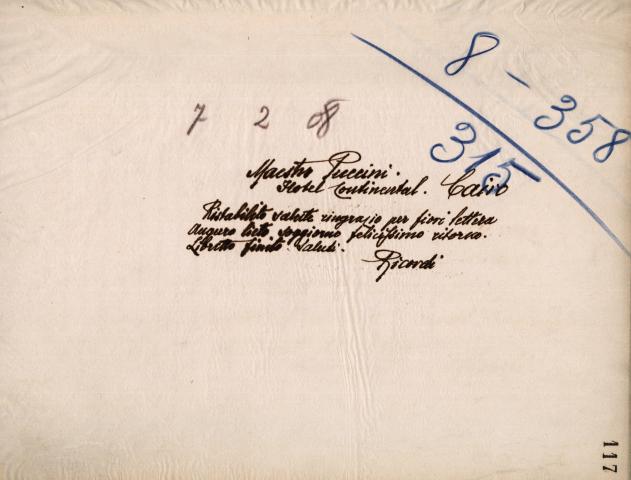 8 - 358
315
7 2 08
Maestro Puccini.
Hotel Continental. Cairo
Ristabilito salute ringrazio per fiori lettera
Auguro lieto soggiorno felicissimo ritorno.
Libretto finito. Saluti.
Ricordi
117